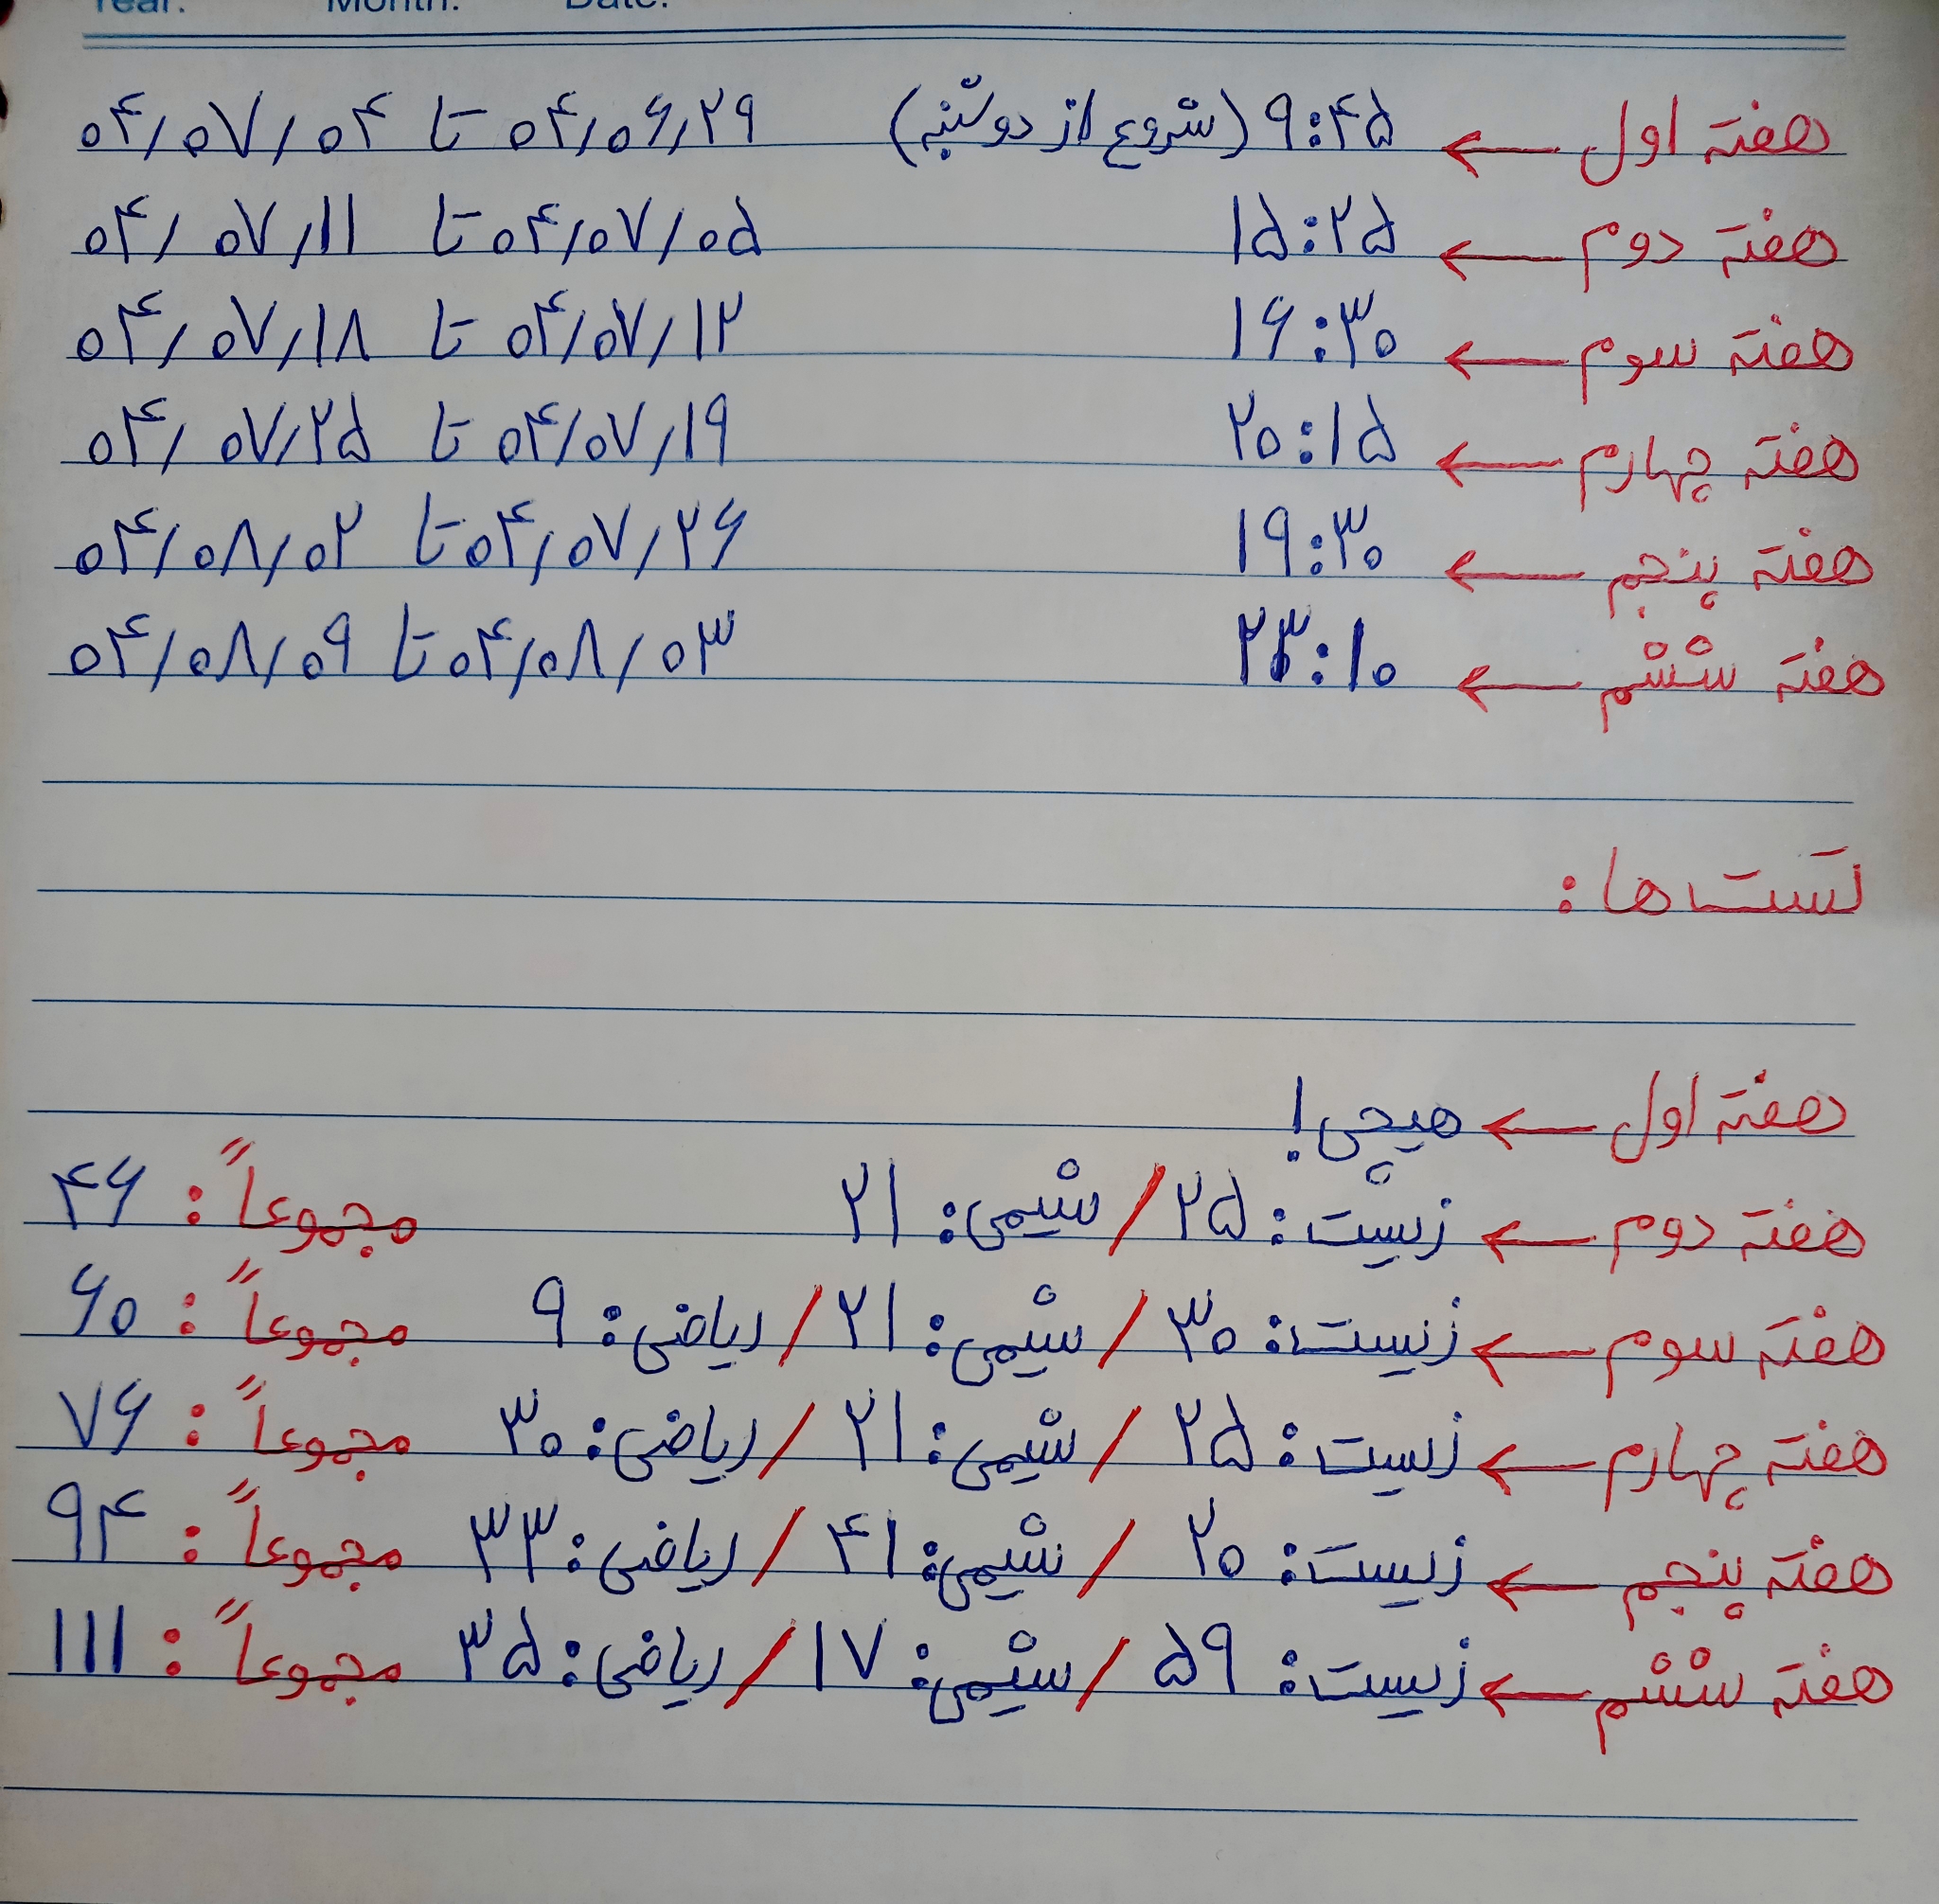 Year: Month: Date:
هفته اول ← ۹:۴۵ (شروع از دوشنبه) ۰۴/۰۶/۲۹ تا ۰۴/۰۷/۰۴
هفته دوم ← ۱۵:۲۵ ۰۴/۰۷/۰۵ تا ۰۴/۰۷/۱۱
هفته سوم ← ۱۶:۳۰ ۰۴/۰۷/۱۲ تا ۰۴/۰۷/۱۸
هفته چهارم ← ۲۰:۱۵ ۰۴/۰۷/۱۹ تا ۰۴/۰۷/۲۵
هفته پنجم ← ۱۹:۳۰ ۰۴/۰۷/۲۶ تا ۰۴/۰۸/۰۲
هفته ششم ← ۲۳:۱۰ ۰۴/۰۸/۰۳ تا ۰۴/۰۸/۰۹
تست ها:
هفته اول ← هیچی!
هفته دوم ← زیست: ۲۵ / شیمی: ۲۱ مجموعاً: ۴۶
هفته سوم ← زیست: ۳۰ / شیمی: ۲۱ / ریاضی: ۹ مجموعاً: ۶۰
هفته چهارم ← زیست: ۲۵ / شیمی: ۲۱ / ریاضی: ۳۰ مجموعاً: ۷۶
هفته پنجم ← زیست: ۲۰ / شیمی: ۴۱ / ریاضی: ۳۳ مجموعاً: ۹۴
هفته ششم ← زیست: ۵۹ / شیمی: ۱۷ / ریاضی: ۳۵ مجموعاً: ۱۱۱